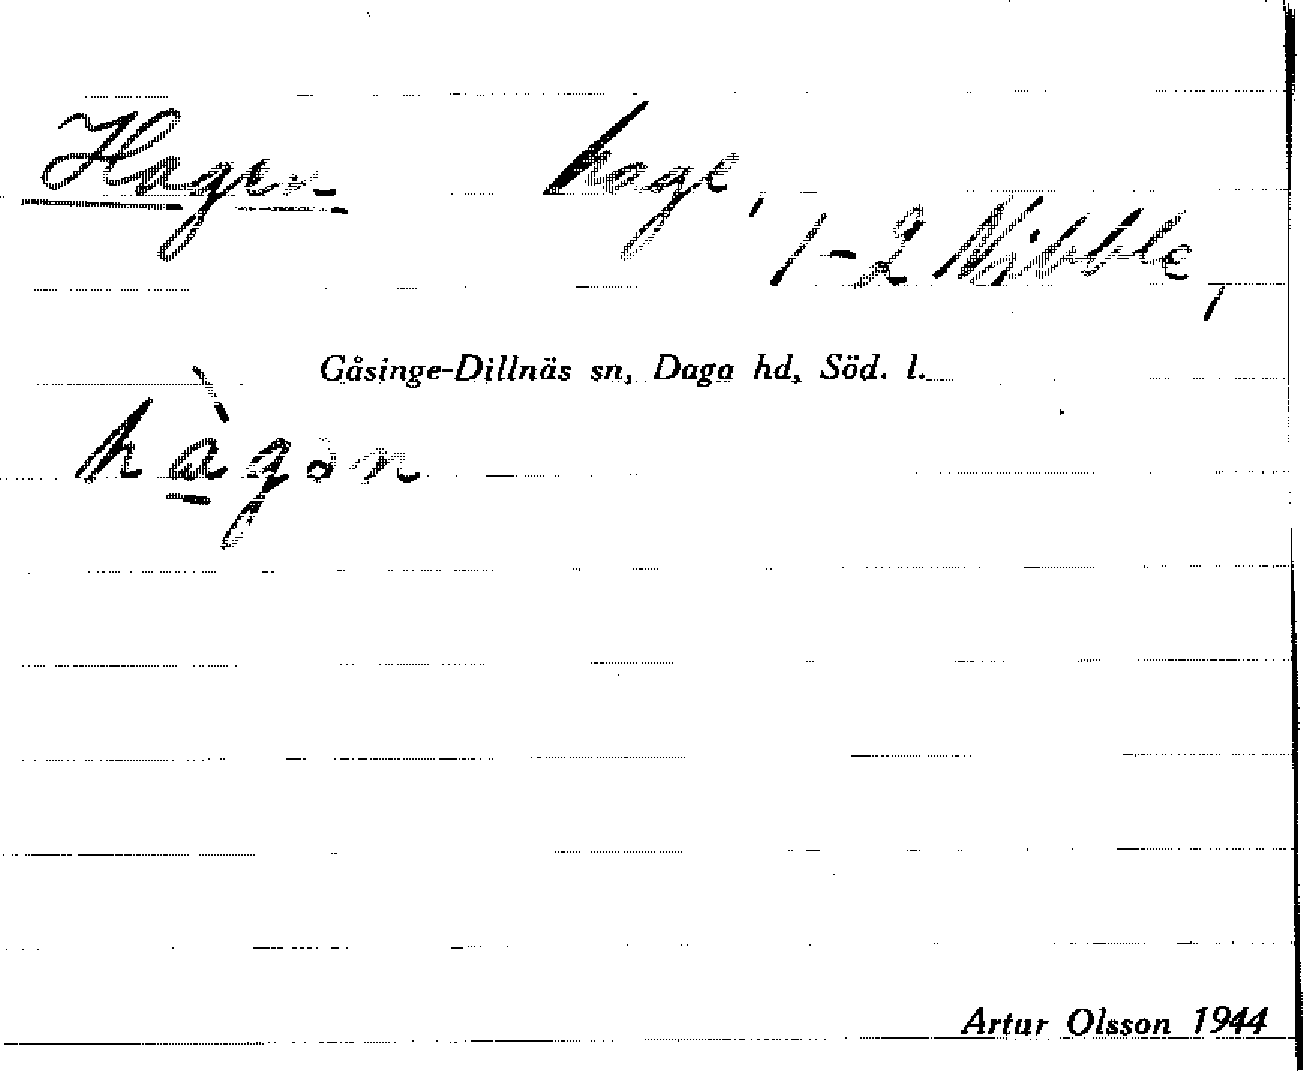 Hagen hage,
1-2 Nibble,
Gåsinge-Dillnäs sn, Daga hd, Söd. l.
hàgən
Artur Olsson 1944